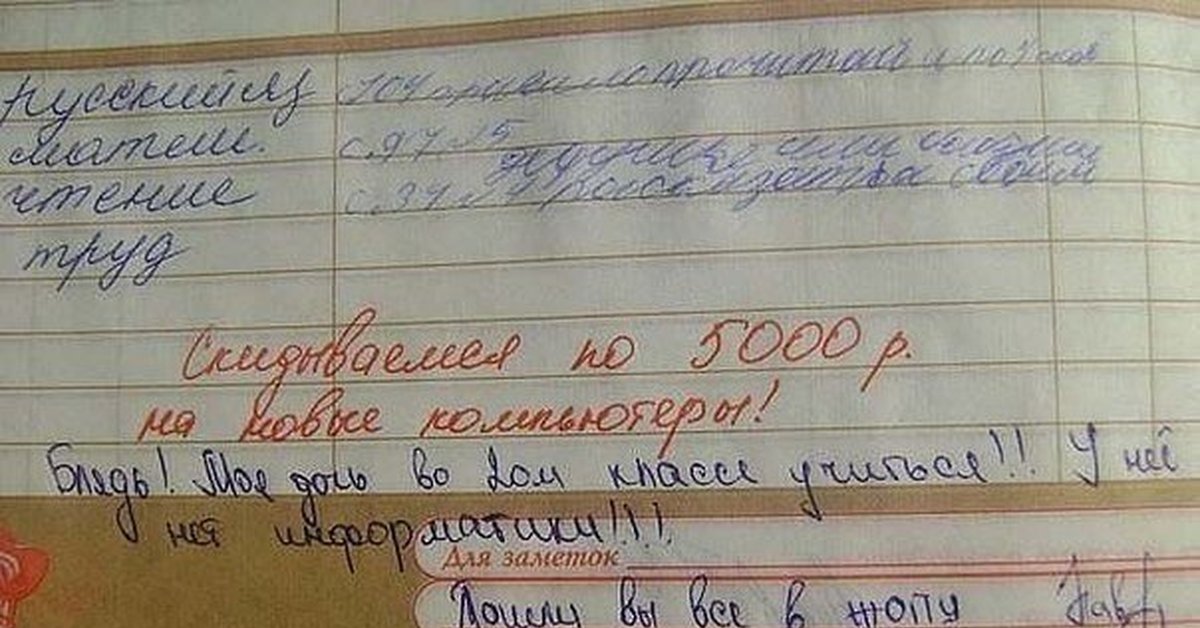 русский яз 104 прочитай и
матем. с. 97 №5
чтение с. 37
труд
Скидываемся по 5000 р.
на новые компьютеры!
Блядь! Моя дочь во 2ом классе учиться!!! У неё
нет информатики!!!!
Для заметок
Пошли вы все в жопу